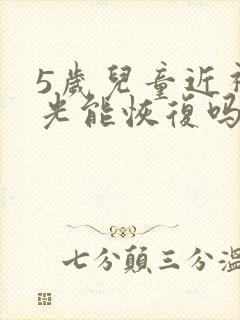 5歲兒童近視
光能恢復吗
七分顛三分溫